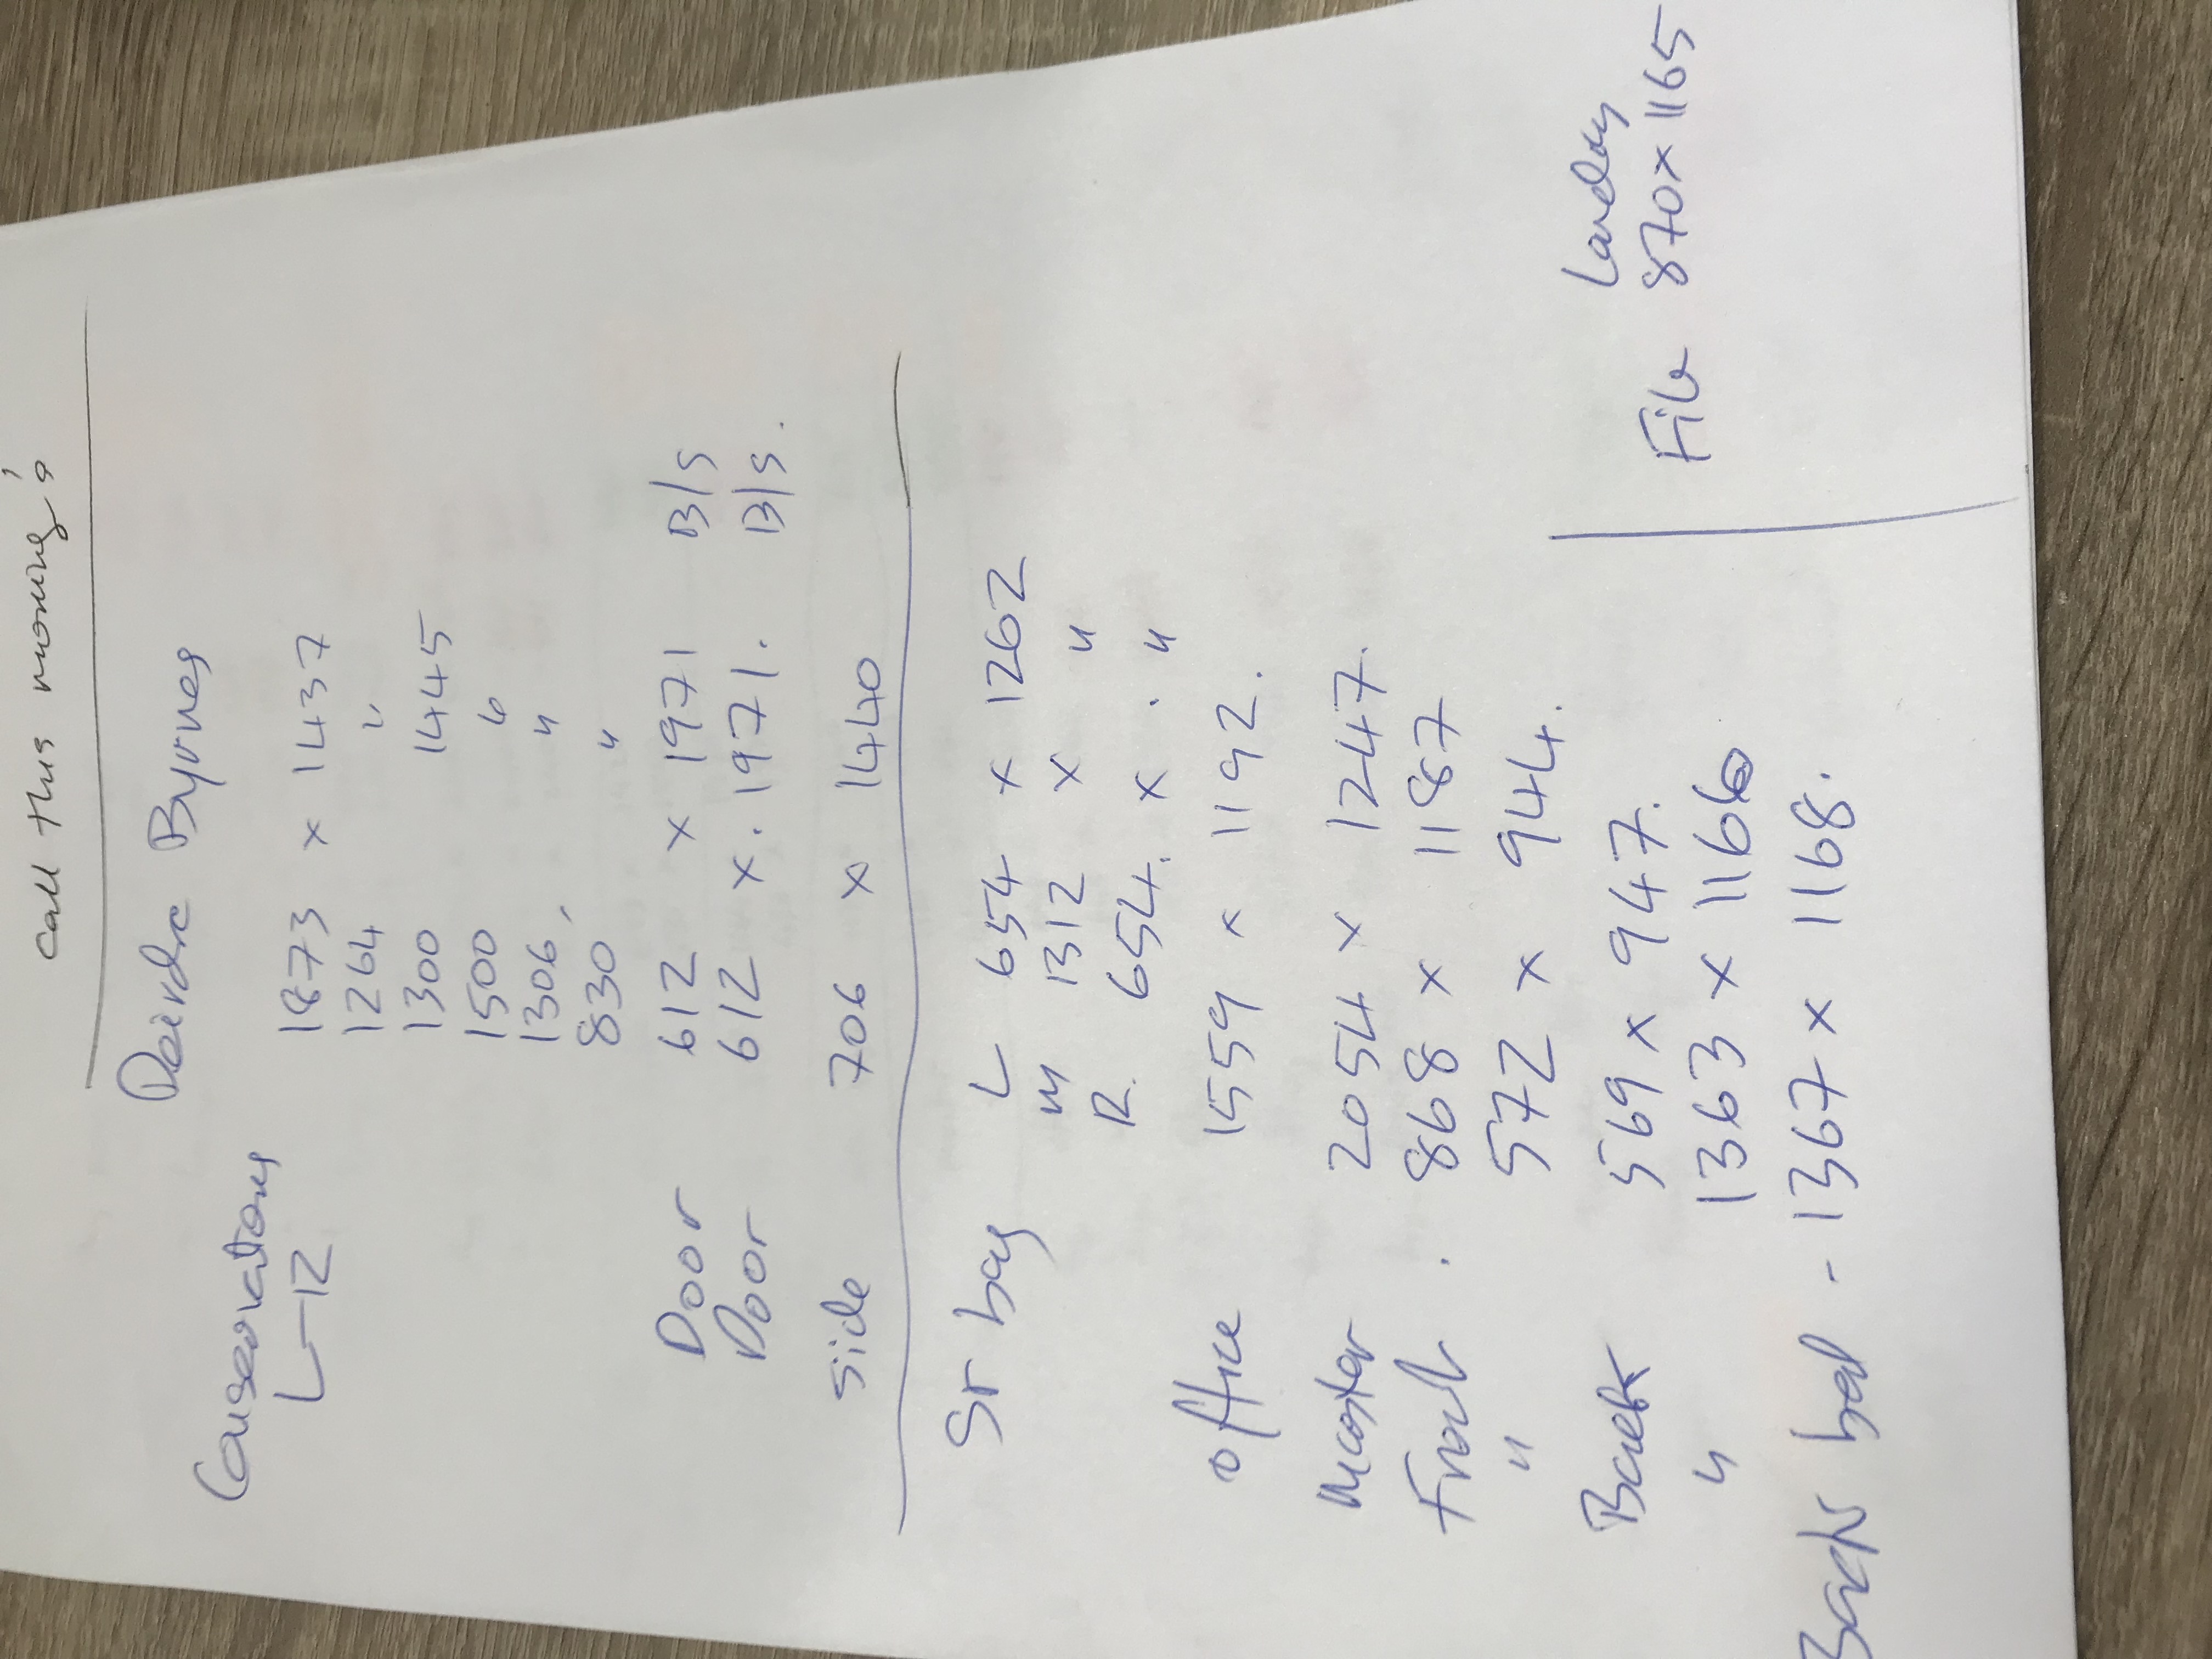 call this morning's
Deirdre Byrnes
Conservatory
L-12 1873 x 1437
1264 "
1300 1445
1500 "
1306, "
830 "
Door 612 x 1971 B/S
Door 612 x. 1971. B/S.
Side 706 x 1440
Sr bay L 654 x 1262
M 1312 x "
R. 654. x . "
office 1559 x 1192.
Master 2054 x 1247.
Front . 868 x 1187
" 572 x 944.
Back 569 x 947.
" 1363 x 1166
Back bed - 1367 x 1168.
Landing
870 x 1165